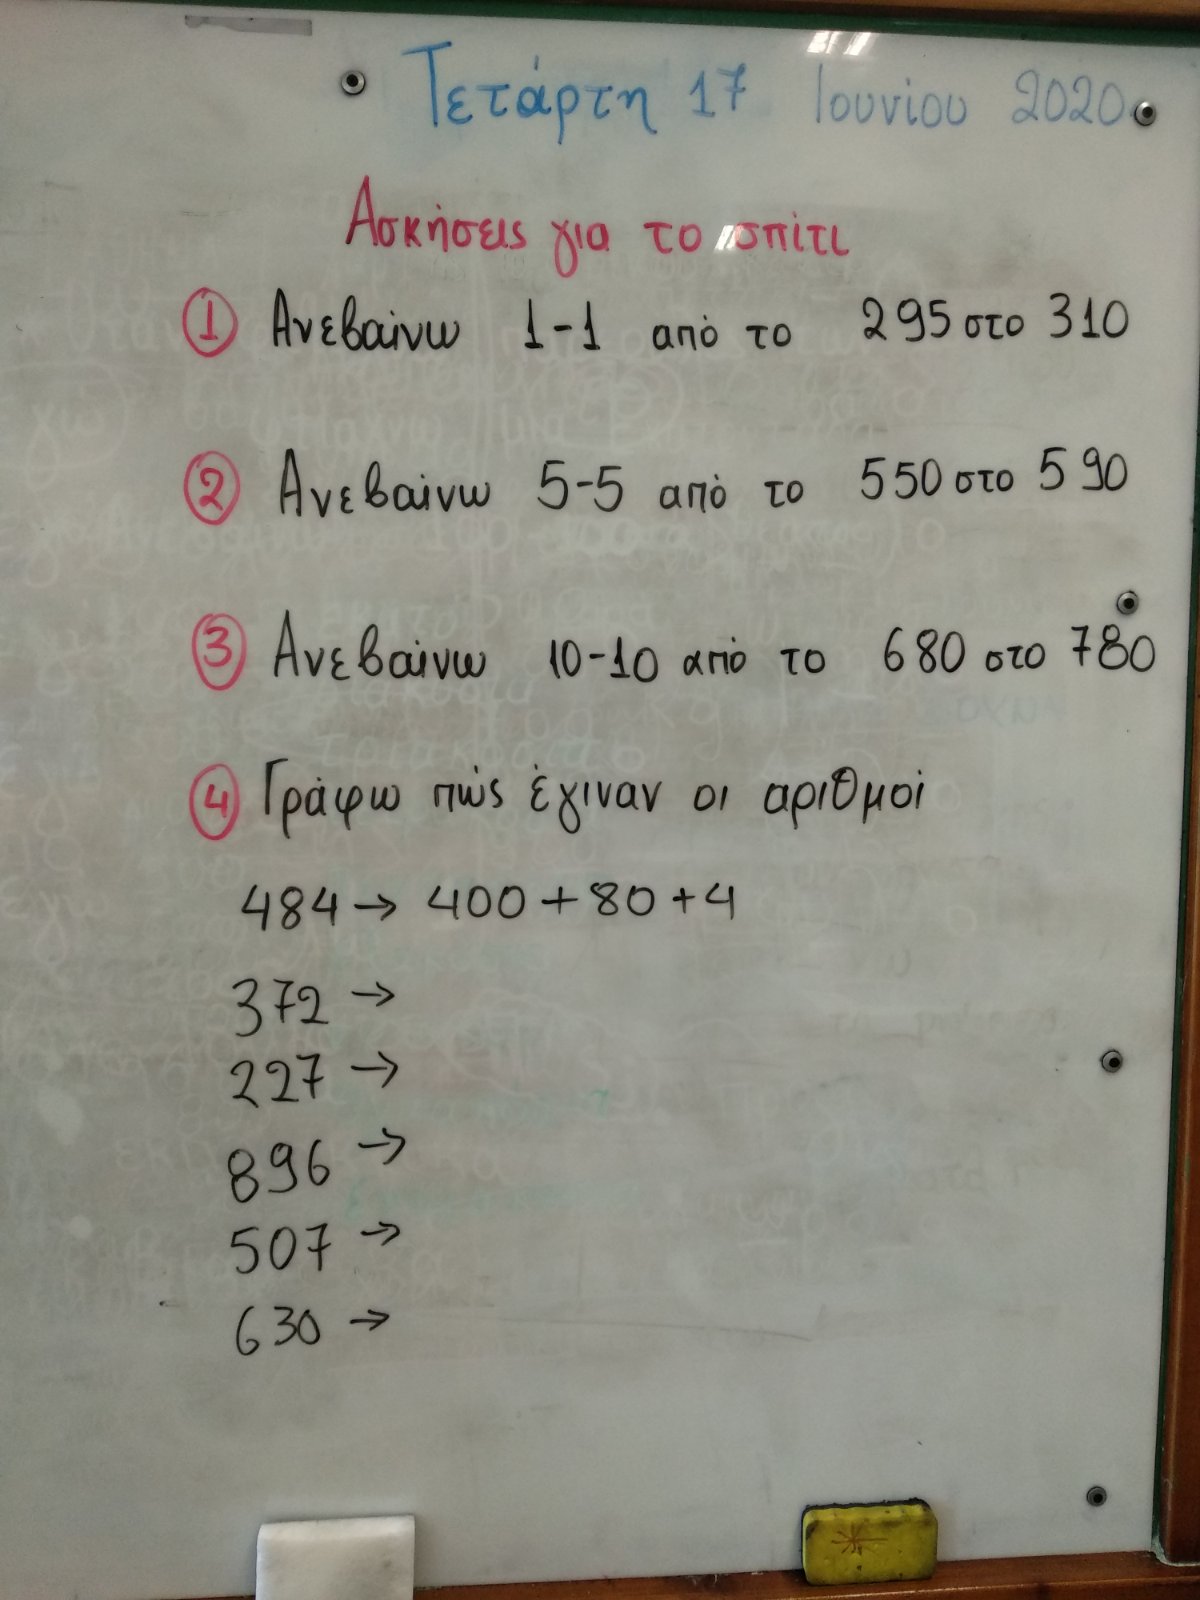 Τετάρτη 17 Ιουνίου 2020
Ασκήσεις για το σπίτι
1 Ανεβαίνω 1-1 από το 295 στο 310
2 Ανεβαίνω 5-5 από το 550 στο 590
3 Ανεβαίνω 10-10 από το 680 στο 780
4 Γράφω πώς έγιναν οι αριθμοί
484 → 400 + 80 + 4
372 →
227 →
896 →
507 →
630 →